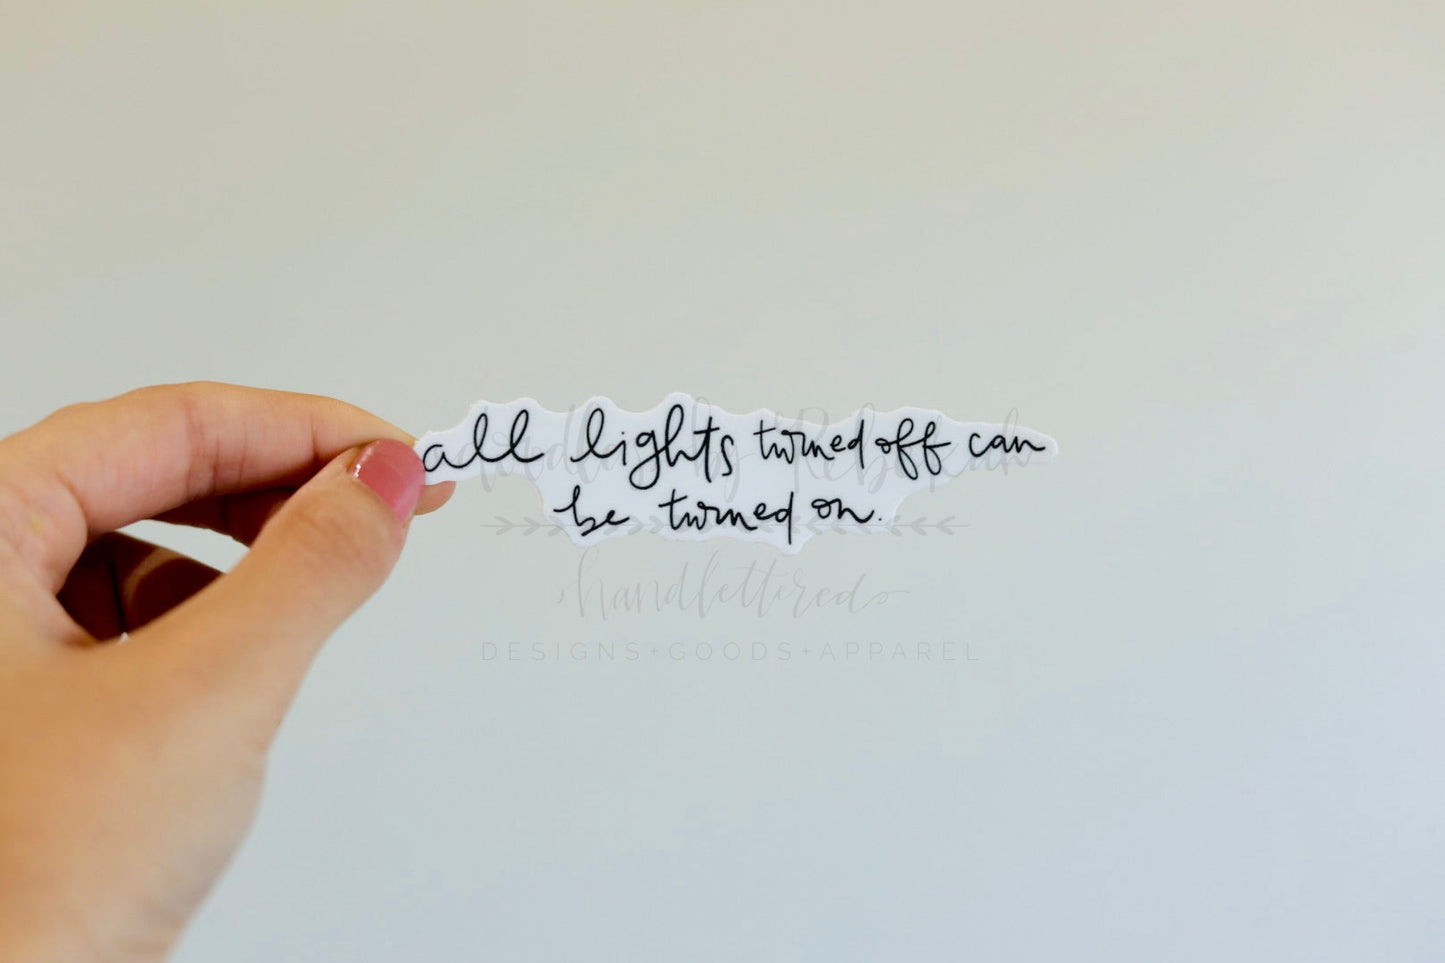 all lights turned off can
be turned on.
handlettered
DESIGNS+GOODS+APPAREL